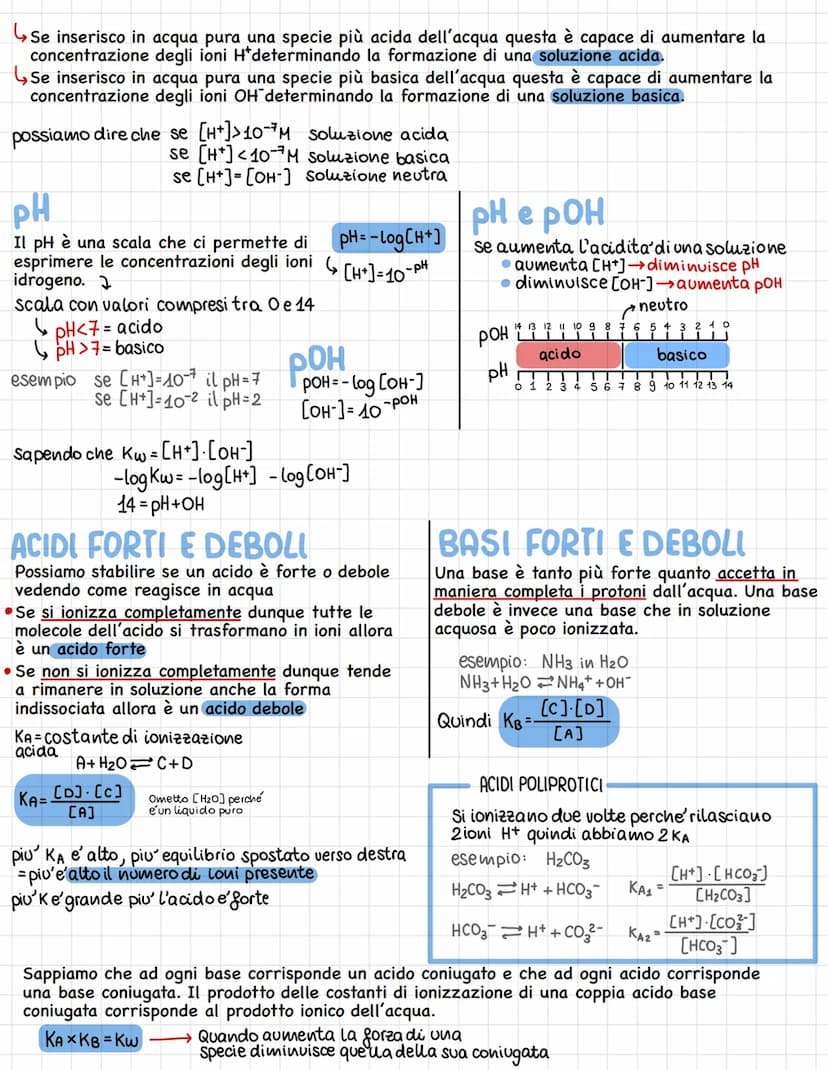 ↳ Se inserisco in acqua pura una specie più acida dell'acqua questa è capace di aumentare la
concentrazione degli ioni H⁺ determinando la formazione di una soluzione acida.
↳ Se inserisco in acqua pura una specie più basica dell'acqua questa è capace di aumentare la
concentrazione degli ioni OH⁻ determinando la formazione di una soluzione basica.
possiamo dire che se [H⁺]>10⁻⁷M soluzione acida
se [H⁺]<10⁻⁷M soluzione basica
se [H⁺]=[OH⁻] soluzione neutra
pH
Il pH è una scala che ci permette di
esprimere le concentrazioni degli ioni
idrogeno.
pH=-log[H⁺]
↳ [H⁺]=10⁻ᵖᴴ
scala con valori compresi tra 0 e 14
↳ pH<7 = acido
↳ pH>7 = basico
esempio se [H⁺]=10⁻⁷ il pH=7
se [H⁺]=10⁻² il pH=2
pOH
pOH=-log[OH⁻]
[OH⁻]=10⁻ᵖᴼᴴ
pH e pOH
se aumenta l'acidita' di una soluzione
• aumenta [H⁺]→diminuisce pH
• diminuisce [OH⁻]→aumenta pOH
neutro
pOH 14 13 12 11 10 9 8 7 6 5 4 3 2 1 0
acido basico
pH 0 1 2 3 4 5 6 7 8 9 10 11 12 13 14
sapendo che Kw=[H⁺]·[OH⁻]
-logKw=-log[H⁺] -log[OH⁻]
14=pH+OH
ACIDI FORTI E DEBOLI
Possiamo stabilire se un acido è forte o debole
vedendo come reagisce in acqua
• Se si ionizza completamente dunque tutte le
molecole dell'acido si trasformano in ioni allora
è un acido forte
• Se non si ionizza completamente dunque tende
a rimanere in soluzione anche la forma
indissociata allora è un acido debole
KA=costante di ionizzazione
acida
A+H₂O⇌C+D
KA= [D]·[C]
[A]
Ometto [H₂O] perché
e' un liquido puro
piu' KA e' alto, piu' equilibrio spostato verso destra
=piu' e' alto il numero di ioni presente
piu' K e' grande piu' l'acido e' forte
BASI FORTI E DEBOLI
Una base è tanto più forte quanto accetta in
maniera completa i protoni dall'acqua. Una base
debole è invece una base che in soluzione
acquosa è poco ionizzata.
esempio: NH₃ in H₂O
NH₃+H₂O⇌NH₄⁺+OH⁻
Quindi KB= [C]·[D]
[A]
ACIDI POLIPROTICI
Si ionizzano due volte perche' rilasciano
2ioni H⁺ quindi abbiamo 2 KA
esempio: H₂CO₃
H₂CO₃⇌H⁺+HCO₃⁻ KA₁ = [H⁺]·[HCO₃⁻]
[H₂CO₃]
HCO₃⁻⇌H⁺+CO₃²⁻ KA₂ = [H⁺]·[CO₃²⁻]
[HCO₃⁻]
Sappiamo che ad ogni base corrisponde un acido coniugato e che ad ogni acido corrisponde
una base coniugata. Il prodotto delle costanti di ionizzazione di una coppia acido base
coniugata corrisponde al prodotto ionico dell'acqua.
KA×KB=Kw → Quando aumenta la forza di una
specie diminuisce quella della sua coniugata